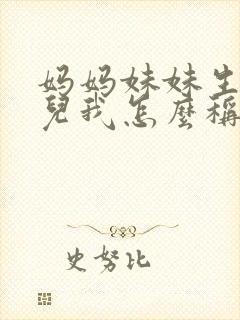 妈妈妹妹生
兒我怎麼稱
史努比